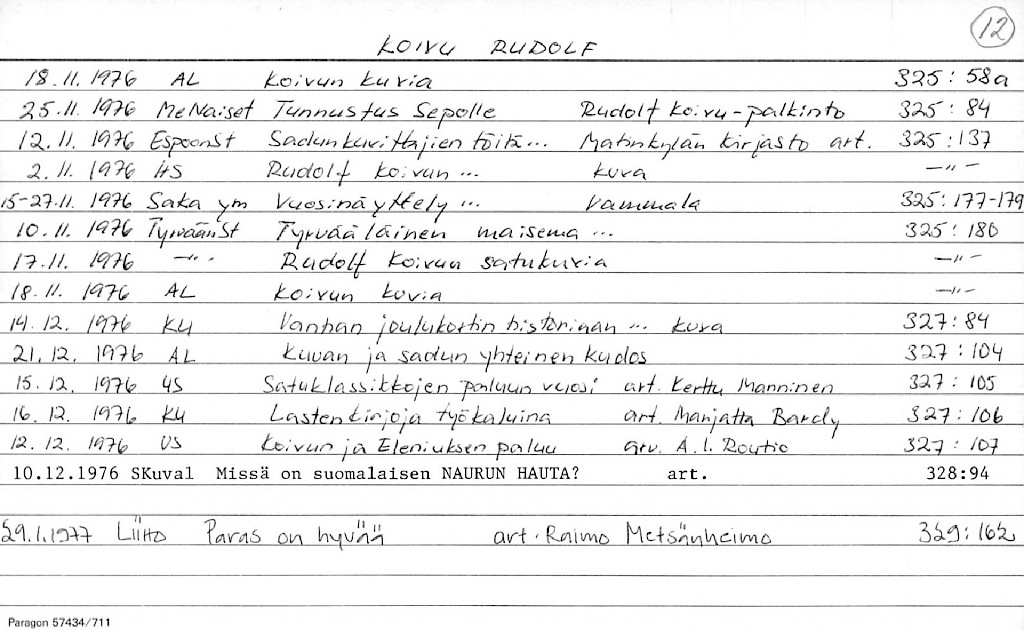 12
KOIVU RUDOLF
18.11.1976 AL Koivun kuvia 325:58a
25.11.1976 MeNaiset Tunnustus Sepolle Rudolf Koivu-palkinto 325:84
12.11.1976 EspoonSt Sadunkuvittajien töitä... Matinkylän kirjasto art. 325:137
2.11.1976 HS Rudolf Koivun ... kuva -"-
15-27.11.1976 Saka ym Vuosinäyttely ... Vammala 325:177-179
10.11.1976 TyrväänSt Tyrvääläinen maisema ... 325:180
17.11.1976 -"- Rudolf Koivun satukuvia -"-
18.11.1976 AL Koivun kuvia -"-
14.12.1976 KU Vanhan joulukortin historiaan ... kuva 327:84
21.12.1976 AL Kuvan ja sadun yhteinen kudos 327:104
15.12.1976 US Satuklassikkojen paluun vuosi art. Kerttu Manninen 327:105
16.12.1976 KU Lastenkirjoja työkaluina art. Marjatta Bardy 327:106
12.12.1976 US Koivun ja Eleniuksen paluu arv. A.I. Routio 327:107
10.12.1976 SKuval Missä on suomalaisen NAURUN HAUTA? art. 328:94
29.1.1977 Liitto Paras on hyvää art. Raimo Metsänheimo 329:162
Paragon 57434/711